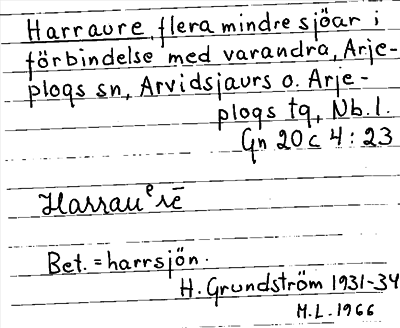 Harraure, flera mindre sjöar i
förbindelse med varandra, Arje-
plogs sn, Arvidsjaurs o. Arje-
plogs tg, Nb. l.
Gn 20 c 4 : 23
Harrauᵉrē
Bet. = harrsjön.
H. Grundström 1931-34
M.L. 1966